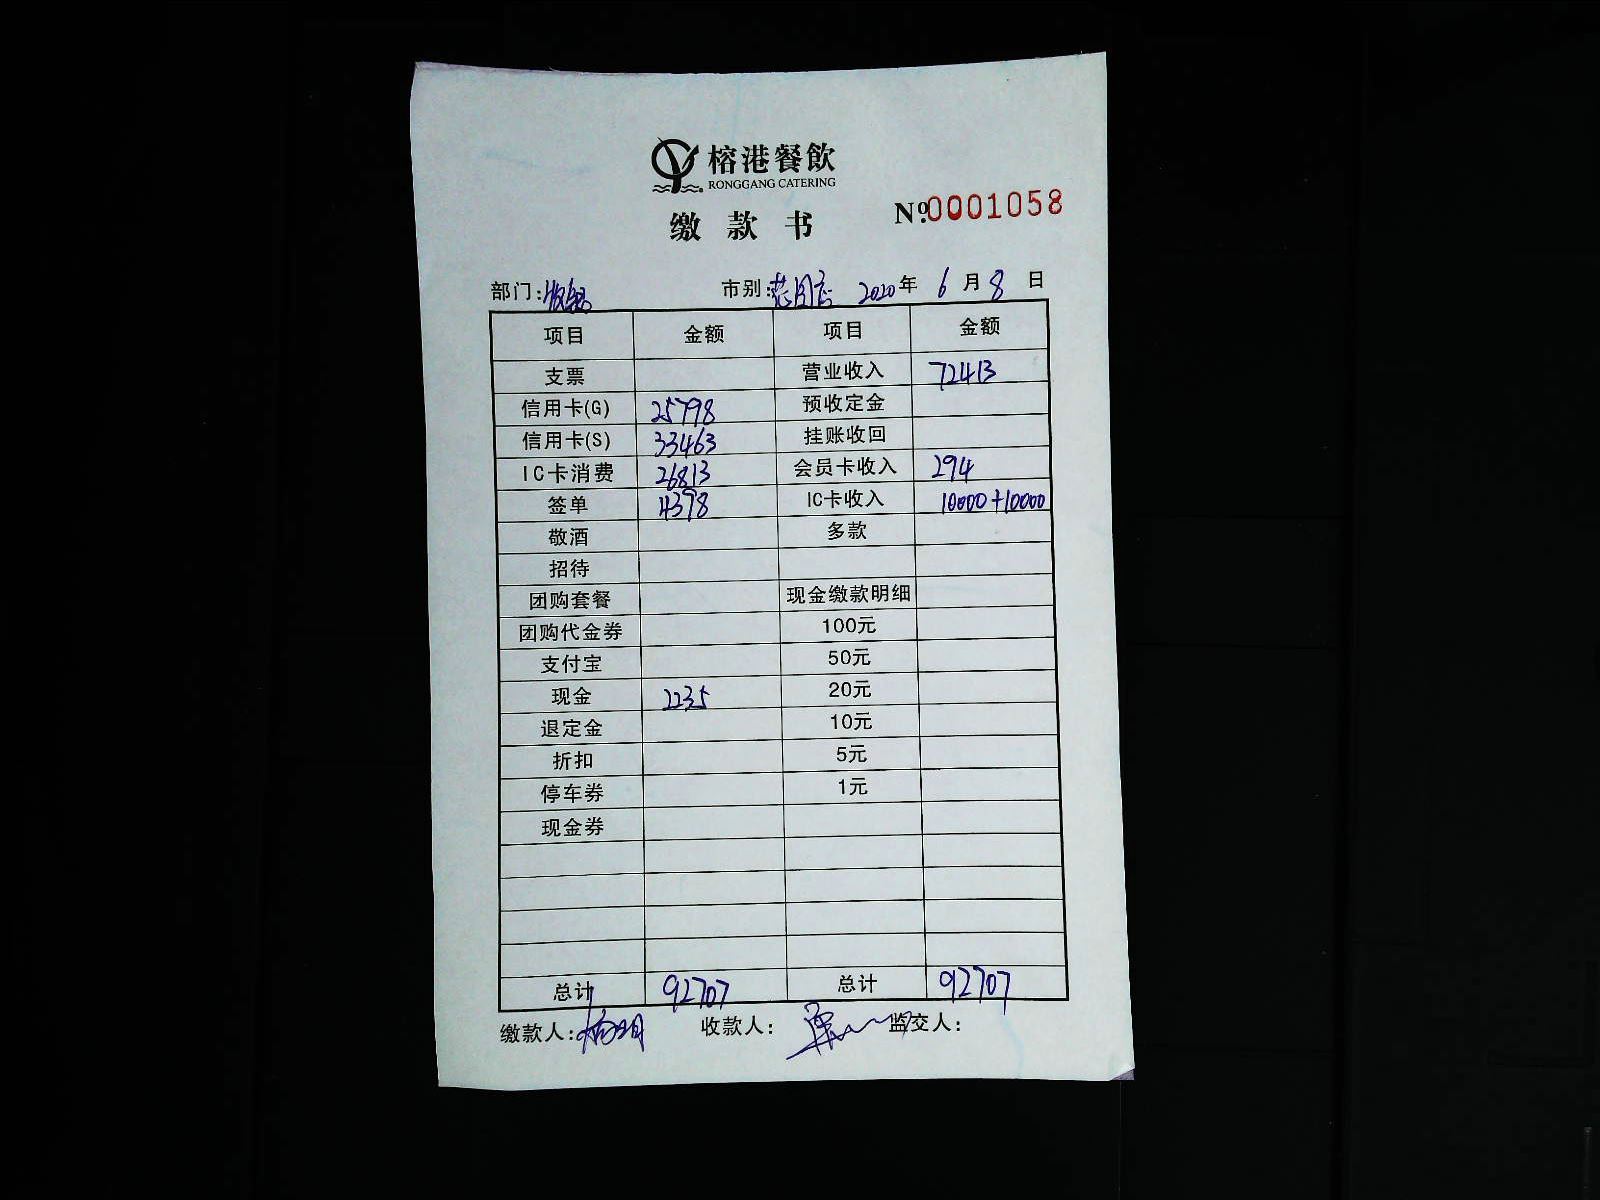 榕港餐飲
RONGGANG CATERING
缴款书 №0001058
部门: 市别: 2020年6月8日
项目 金额 项目 金额
支票 营业收入 72413
信用卡(G) 25798 预收定金
信用卡(S) 33463 挂账收回
IC卡消费 26813 会员卡收入 294
签单 4398 IC卡收入 10000+10000
敬酒 多款
招待
团购套餐 现金缴款明细
团购代金券 100元
支付宝 50元
现金 2235 20元
退定金 10元
折扣 5元
停车券 1元
现金券
总计 92707 总计 92707
缴款人: 收款人: 监交人: